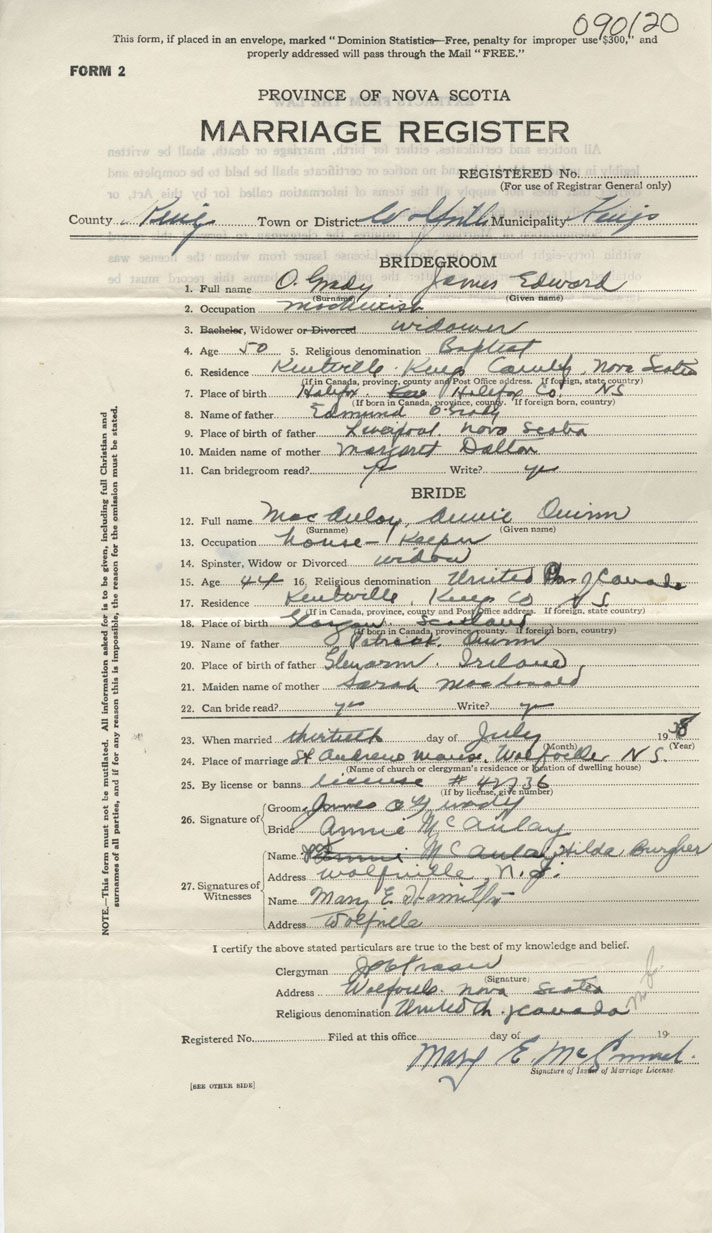 090120
This form, if placed in an envelope, marked "Dominion Statistics—Free, penalty for improper use $300," and
properly addressed will pass through the Mail "FREE."
FORM 2
PROVINCE OF NOVA SCOTIA
MARRIAGE REGISTER
REGISTERED No.
(For use of Registrar General only)
County Kings Town or District Wolfville Municipality Kings
BRIDEGROOM
1. Full name O'Grady James Edward
(Surname) (Given name)
2. Occupation Machinist
3. Bachelor, Widower or Divorced widower
4. Age 50 5. Religious denomination Baptist
6. Residence Kentville Kings County, Nova Scotia
(If in Canada, province, county and Post Office address. If foreign, state country)
7. Place of birth Halifax Halifax Co. N S
(If born in Canada, province, county. If foreign born, country)
8. Name of father Edmund O'Grady
9. Place of birth of father Liverpool, Nova Scotia
10. Maiden name of mother Margaret Dalton
11. Can bridegroom read? yes Write? yes
BRIDE
12. Full name MacAulay, Annie Quinn
(Surname) (Given name)
13. Occupation house-keeper
14. Spinster, Widow or Divorced widow
15. Age 44 16. Religious denomination United Ch. of Canada
17. Residence Kentville, Kings Co N S
(If in Canada, province, county and Post Office address. If foreign, state country)
18. Place of birth Glasgow Scotland
(If born in Canada, province, county. If foreign born, country)
19. Name of father Patrick Quinn
20. Place of birth of father Glenarm, Ireland
21. Maiden name of mother Sarah Macdonald
22. Can bride read? yes Write? yes
23. When married thirtieth day of July 1938
(Month) (Year)
24. Place of marriage St Andrews Manse, Wolfville N S.
(Name of church or clergyman's residence or location of dwelling house)
25. By license or banns license # 42736
(If by license, give number)
26. Signature of Groom James O'Grady
Bride Annie McAulay
27. Signatures of Witnesses
Name Annie McAulay Hilda Burgher
Address Wolfville, N.S.
Name Mary E. Hamilton
Address Wolfville
I certify the above stated particulars are true to the best of my knowledge and belief.
Clergyman Fraser
(Signature)
Address Wolfville Nova Scotia
Religious denomination United Ch. of Canada
Registered No. Filed at this office day of 19
Mary E.
Signature of Issuer of Marriage License
[SEE OTHER SIDE]
NOTE.—This form must not be mutilated. All information asked for is to be given, including full Christian and
surnames of all parties, and if for any reason this is impossible, the reason for the omission must be stated.